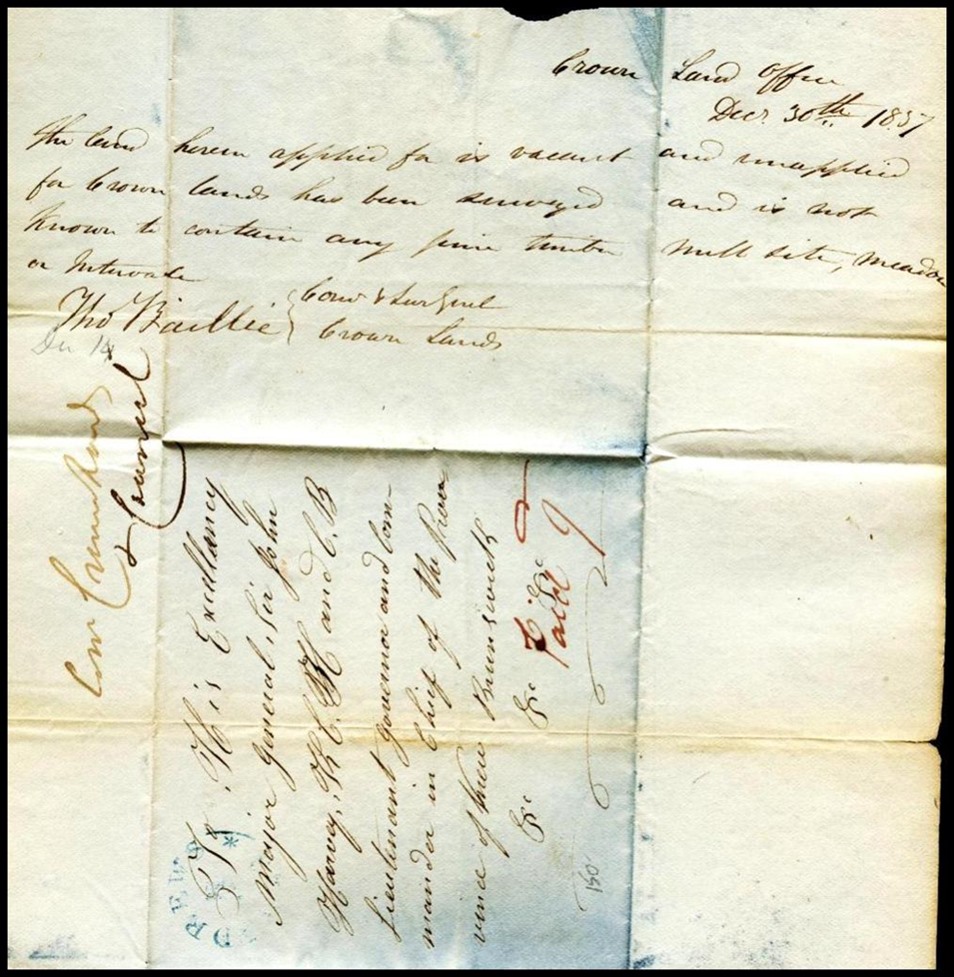 Crown Land Office
Decr. 30th 1837
The land herein applied for is vacant and unapplied
for Crown lands has been surveyed and is not
Known to contain any pine timber Mill site, Meadow
or Intervale
Tho Baillie { Com & Sur Genl
Crown Lands
Dec 14
Com Crown Land
& Council
To, His Excellancy
Major General, Sir John
Harvey, K C. H and C. B
Lieutenant governor and Com
mander in Chief of the Prov
vince of New Brunswick
&c &c &c
Paid 9
150